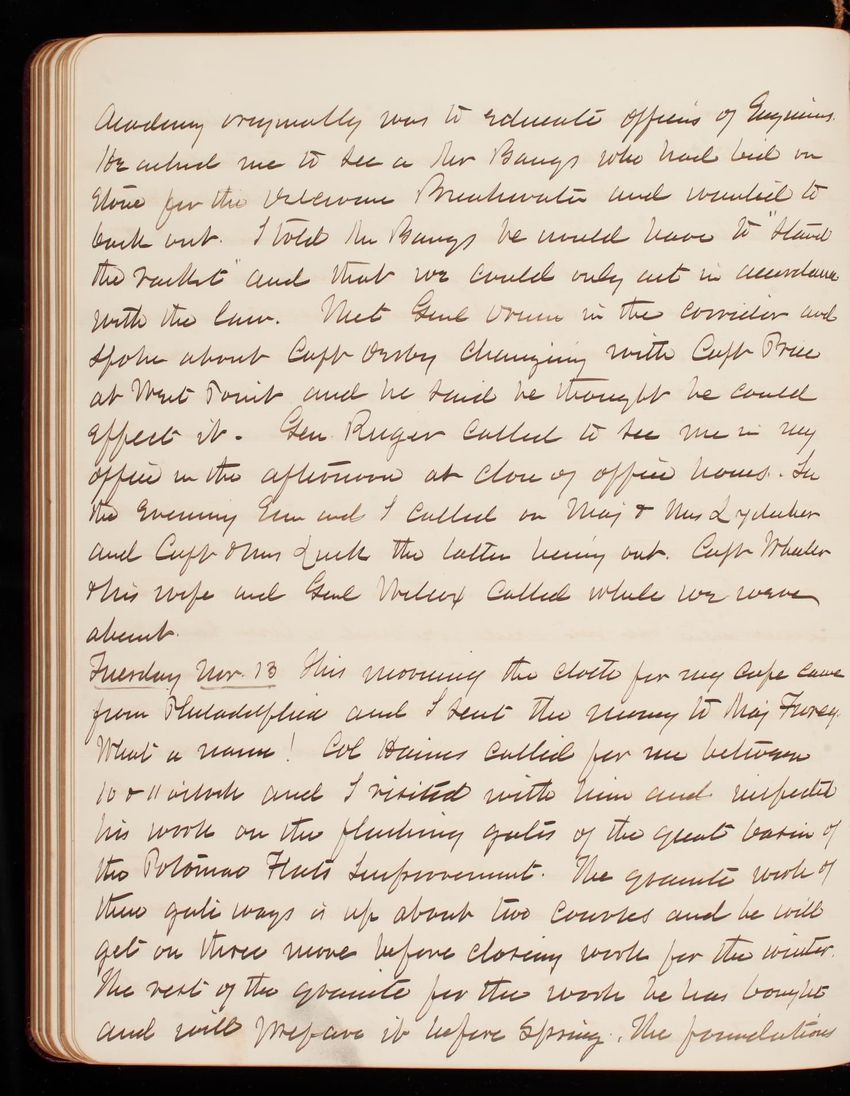 Academy originally was to educate officers of Engineers.
He asked me to see a Mr Bangs who had bid on
stone for the Delaware Breakwater and wanted to
back out. I told Mr Bangs he would have to "stand
the racket" and that we could only act in accordance
with the law. Met Genl Drum in the corridor and
spoke about Capt Derby changing with Capt Price
at West Point and he said he thought he could
effect it. Gen. Ruger called to see me in my
office in the afternoon at close of office hours. In
the Evening Em and I called on Maj & Mrs Lydecker
and Capt & Mrs Lusk the latter being out. Capt Wheeler
& his wife and Genl Wilcox called while we were
absent.
Tuesday Nov. 13 This morning the cloth for my cape came
from Philadelphia and I sent the money to Maj Furey.
What a name! Col Hains called for me between
10 & 11 o'clock and I visited with him and inspected
his work on the flushing gates of the great basin of
the Potomac Flats Improvement. The granite work of
these gate ways is up about two courses and he will
get on three more before closing work for the winter.
The rest of the granite for the work he has bought
and will prepare it before Spring. The foundations